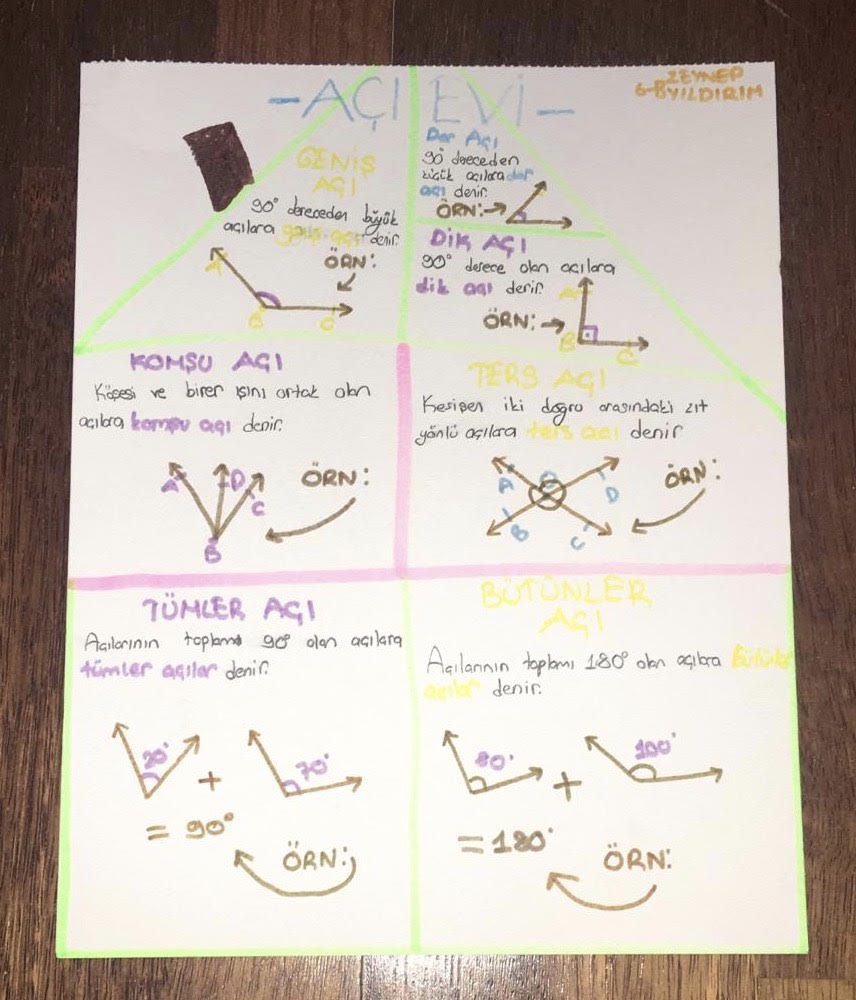 -AÇI EVİ-
ZEYNEP
6-B YILDIRIM
GENİŞ
AÇI
90° dereceden büyük
açılara geniş açı denir.
ÖRN:
A
B
C
Dar Açı
90 dereceden
küçük açılara dar
açı denir.
ÖRN:→
DİK AÇI
90° derece olan açılara
dik açı denir.
ÖRN:→
A
B
C
KOMŞU AÇI
Köşesi ve birer ışını ortak olan
açılara komşu açı denir.
ÖRN:
A
D
C
B
TERS AÇI
Kesişen iki doğru arasındaki zıt
yönlü açılara ters açı denir
ÖRN:
A
D
B
C
TÜMLER AÇI
Açılarının toplamı 90° olan açılara
tümler açılar denir.
20° + 70°
= 90°
ÖRN:
BÜTÜNLER
AÇI
Açılarının toplamı 180° olan açılara bütünler
açılar denir.
80° + 100°
=180°
ÖRN: